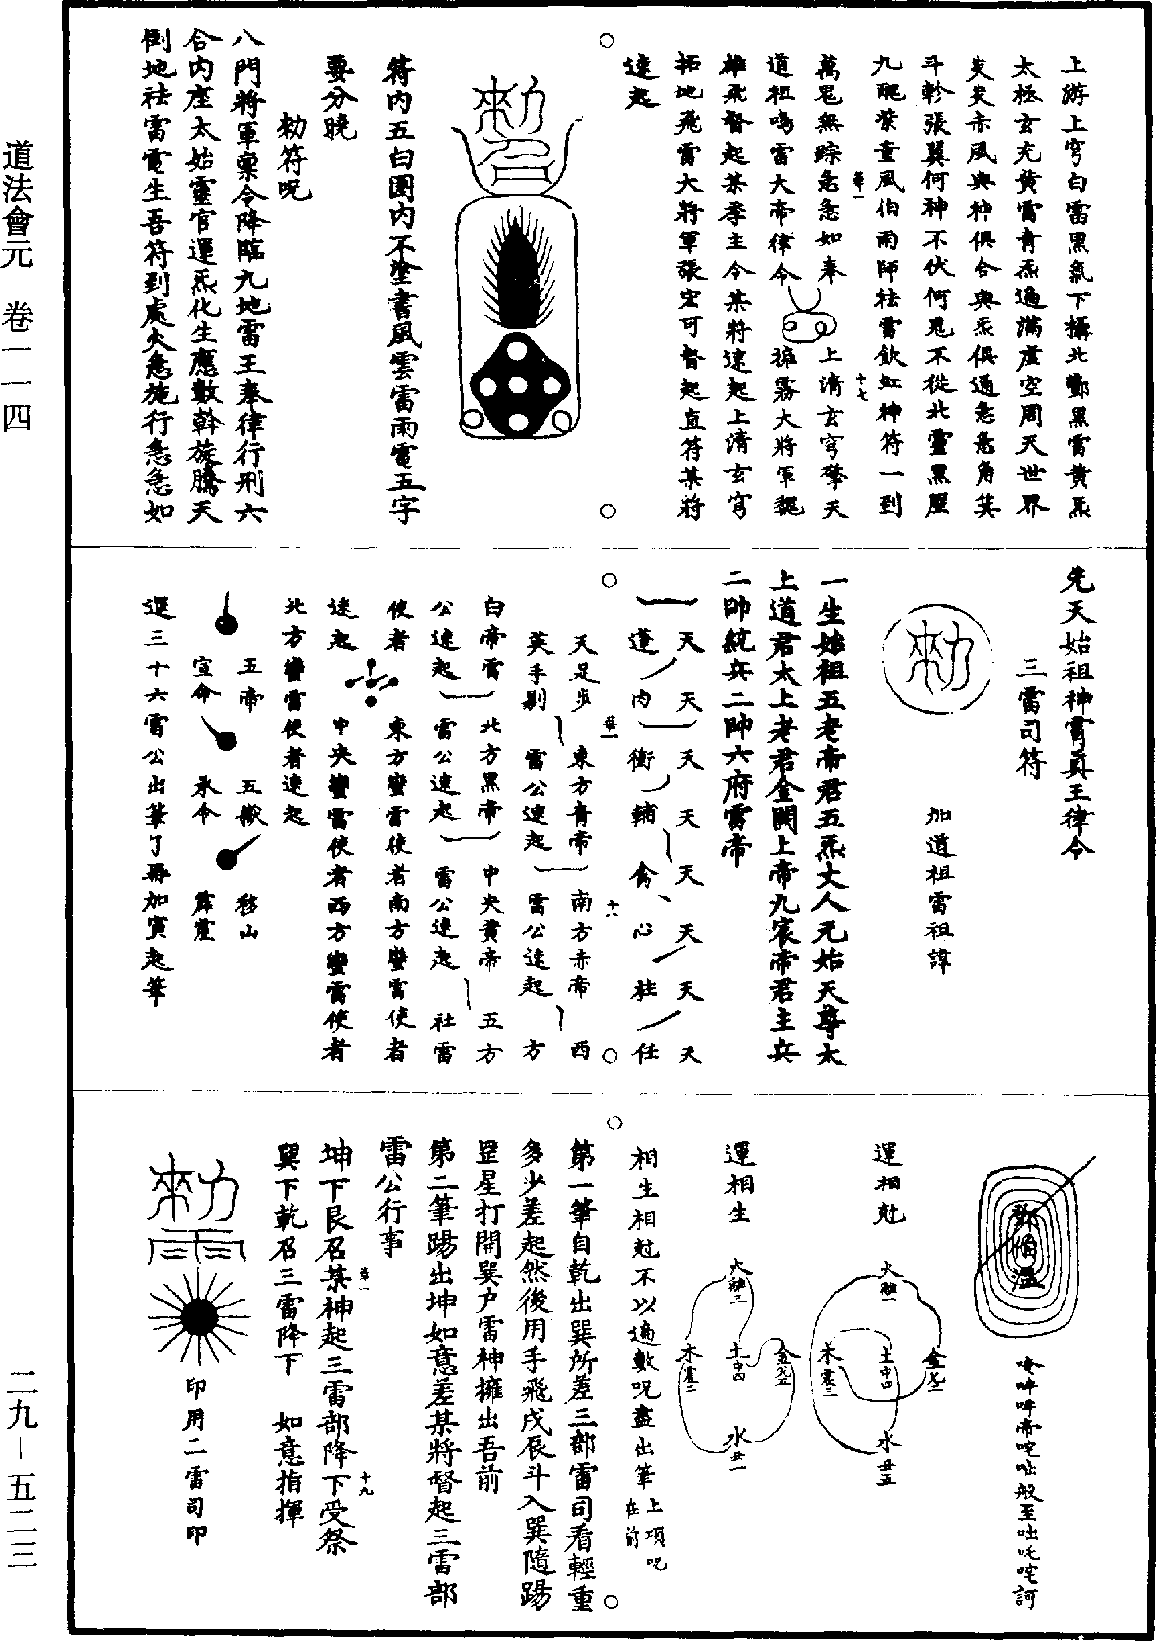 道法會元 卷一一四
上游上穹白雷黑氣下攝北酆黑雷黄炁
太極玄充黄雷青炁遍滿虛空周天世界
炎炎赤風與神俱合與炁俱通急急角箕
斗軫張翼何神不伏何鬼不從北靈黑壓
九醜紫童風伯雨師祛雷飲虹神符一到
萬鬼無踪急急如奉 上清玄穹擎天
道祖鳴雷大帝律令 擁霧大將軍魏
雄飛督起某季主令某將速起上清玄穹
拓地飛雷大將軍張宏可督起直符某將
速起
第一
十七
勑
符内五白圈内不塗書風雲雷雨電五字
要分曉
勑符呪
八門將軍稟令降臨九地雷王奉律行刑六
合内座太始靈官運炁化生應數斡旋騰天
倒地祛雷電生吾符到處火急施行急急如
先天始祖神霄真王律令
三雷司符
勑
加道祖雷祖諱
一生始祖五老帝君五炁大人元始天尊太
上道君太上老君金闕上帝九宸帝君主兵
二帥統兵二帥六府雷帝
天 天 天 天 天 天 天 天
蓬 内 衝 輔 禽 心 柱 任
天足步 東方青帝 南方赤帝 西
英手剔 雷公速起 雷公速起 方
白帝雷 北方黑帝 中央黄帝 五方
公速起 雷公速起 雷公速起 社雷
使者 東方蠻雷使者南方蠻雷使者
速起 中央蠻雷使者西方蠻雷使者
北方蠻雷使者速起
第一
十八
五帝 五嶽 移山
宣命 承令 霹靂
運三十六雷公出筆了再加寅起筆
鄧伯溫
唵吽吽帝咤呲般至呲吒咤訶
運相尅
火離一
金兌二
土中四
木震三
水丑五
運相生
火離三
金兌五
土中四
木震二
水丑一
相生相尅不以遍數呪盡出筆上項呪在前
第一筆自乾出巽所差三部雷司看輕重
多少差起然後用手飛戌辰斗入巽隨踢
罡星打開巽户雷神擁出吾前
第二筆踢出坤如意差某將督起三雷部
雷公行事
坤下艮召某神起三雷部降下受祭
巽下乾召三雷降下 如意指揮
第一
十九
勑
印用二雷司印
二九－五二三